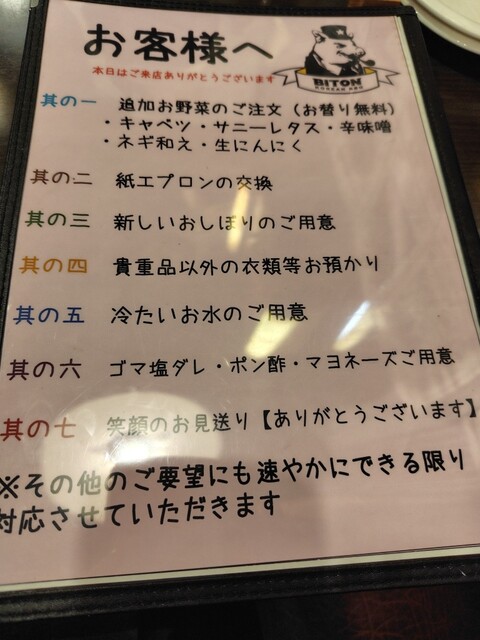 お客様へ
本日はご来店ありがとうございます
BITON
KOREAN BBQ
其の一 追加お野菜のご注文（お替り無料）
・キャベツ・サニーレタス・辛味噌
・ネギ和え・生にんにく
其の二 紙エプロンの交換
其の三 新しいおしぼりのご用意
其の四 貴重品以外の衣類等お預かり
其の五 冷たいお水のご用意
其の六 ゴマ塩ダレ・ポン酢・マヨネーズご用意
其の七 笑顔のお見送り【ありがとうございます】
※その他のご要望にも速やかにできる限り
対応させていただきます